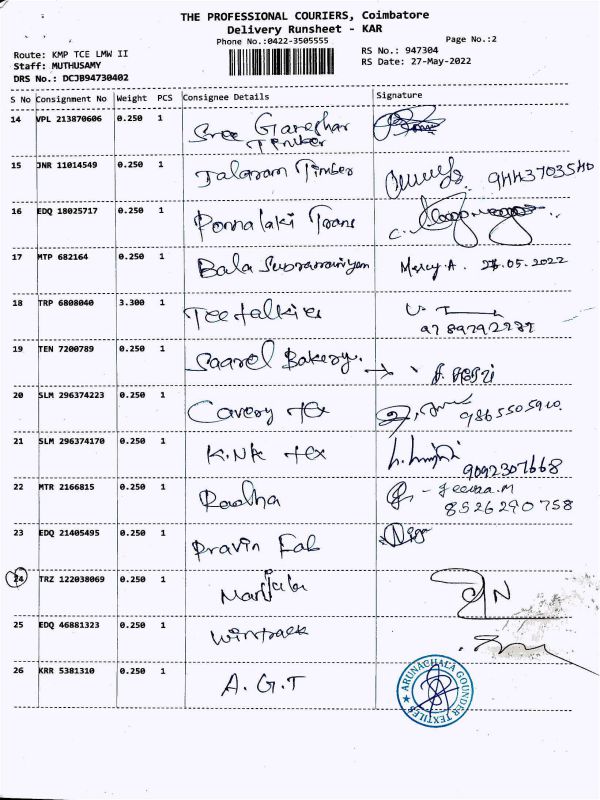 THE PROFESSIONAL COURIERS, Coimbatore
Delivery Runsheet - KAR
Phone No.:0422-3505555
Page No.:2
Route: KMP TCE LMW II
Staff: MUTHUSAMY
DRS No.: DCJB94730402
RS No.: 947304
RS Date: 27-May-2022
S No Consignment No Weight PCS Consignee Details Signature
14 VPL 213870606 0.250 1 Sree Ganeshar
Timber
15 JNR 11014549 0.250 1 Jalaram Timber 9443703540
16 EDQ 18025717 0.250 1 Ponnalaki Trans
17 MTP 682164 0.250 1 Bala Subramaniyam Mercy.A. 27.05.2022
18 TRP 6808040 3.300 1 Teetalkies
9789792987
19 TEN 7200789 0.250 1 Saarel Bakery.
20 SLM 296374223 0.250 1 Cavery tex 9865505910.
21 SLM 296374170 0.250 1 K.NK tex
9092307668
22 MTR 2166815 0.250 1 Radha - Jeeva.M
8526290758
23 EDQ 21405495 0.250 1 Pravin Fab
24 TRZ 122038069 0.250 1 Manjula
25 EDQ 46881323 0.250 1 Wintrack
26 KRR 5381310 0.250 1 A.G.T
ARUNACHALA GOUNDER TEXTILES